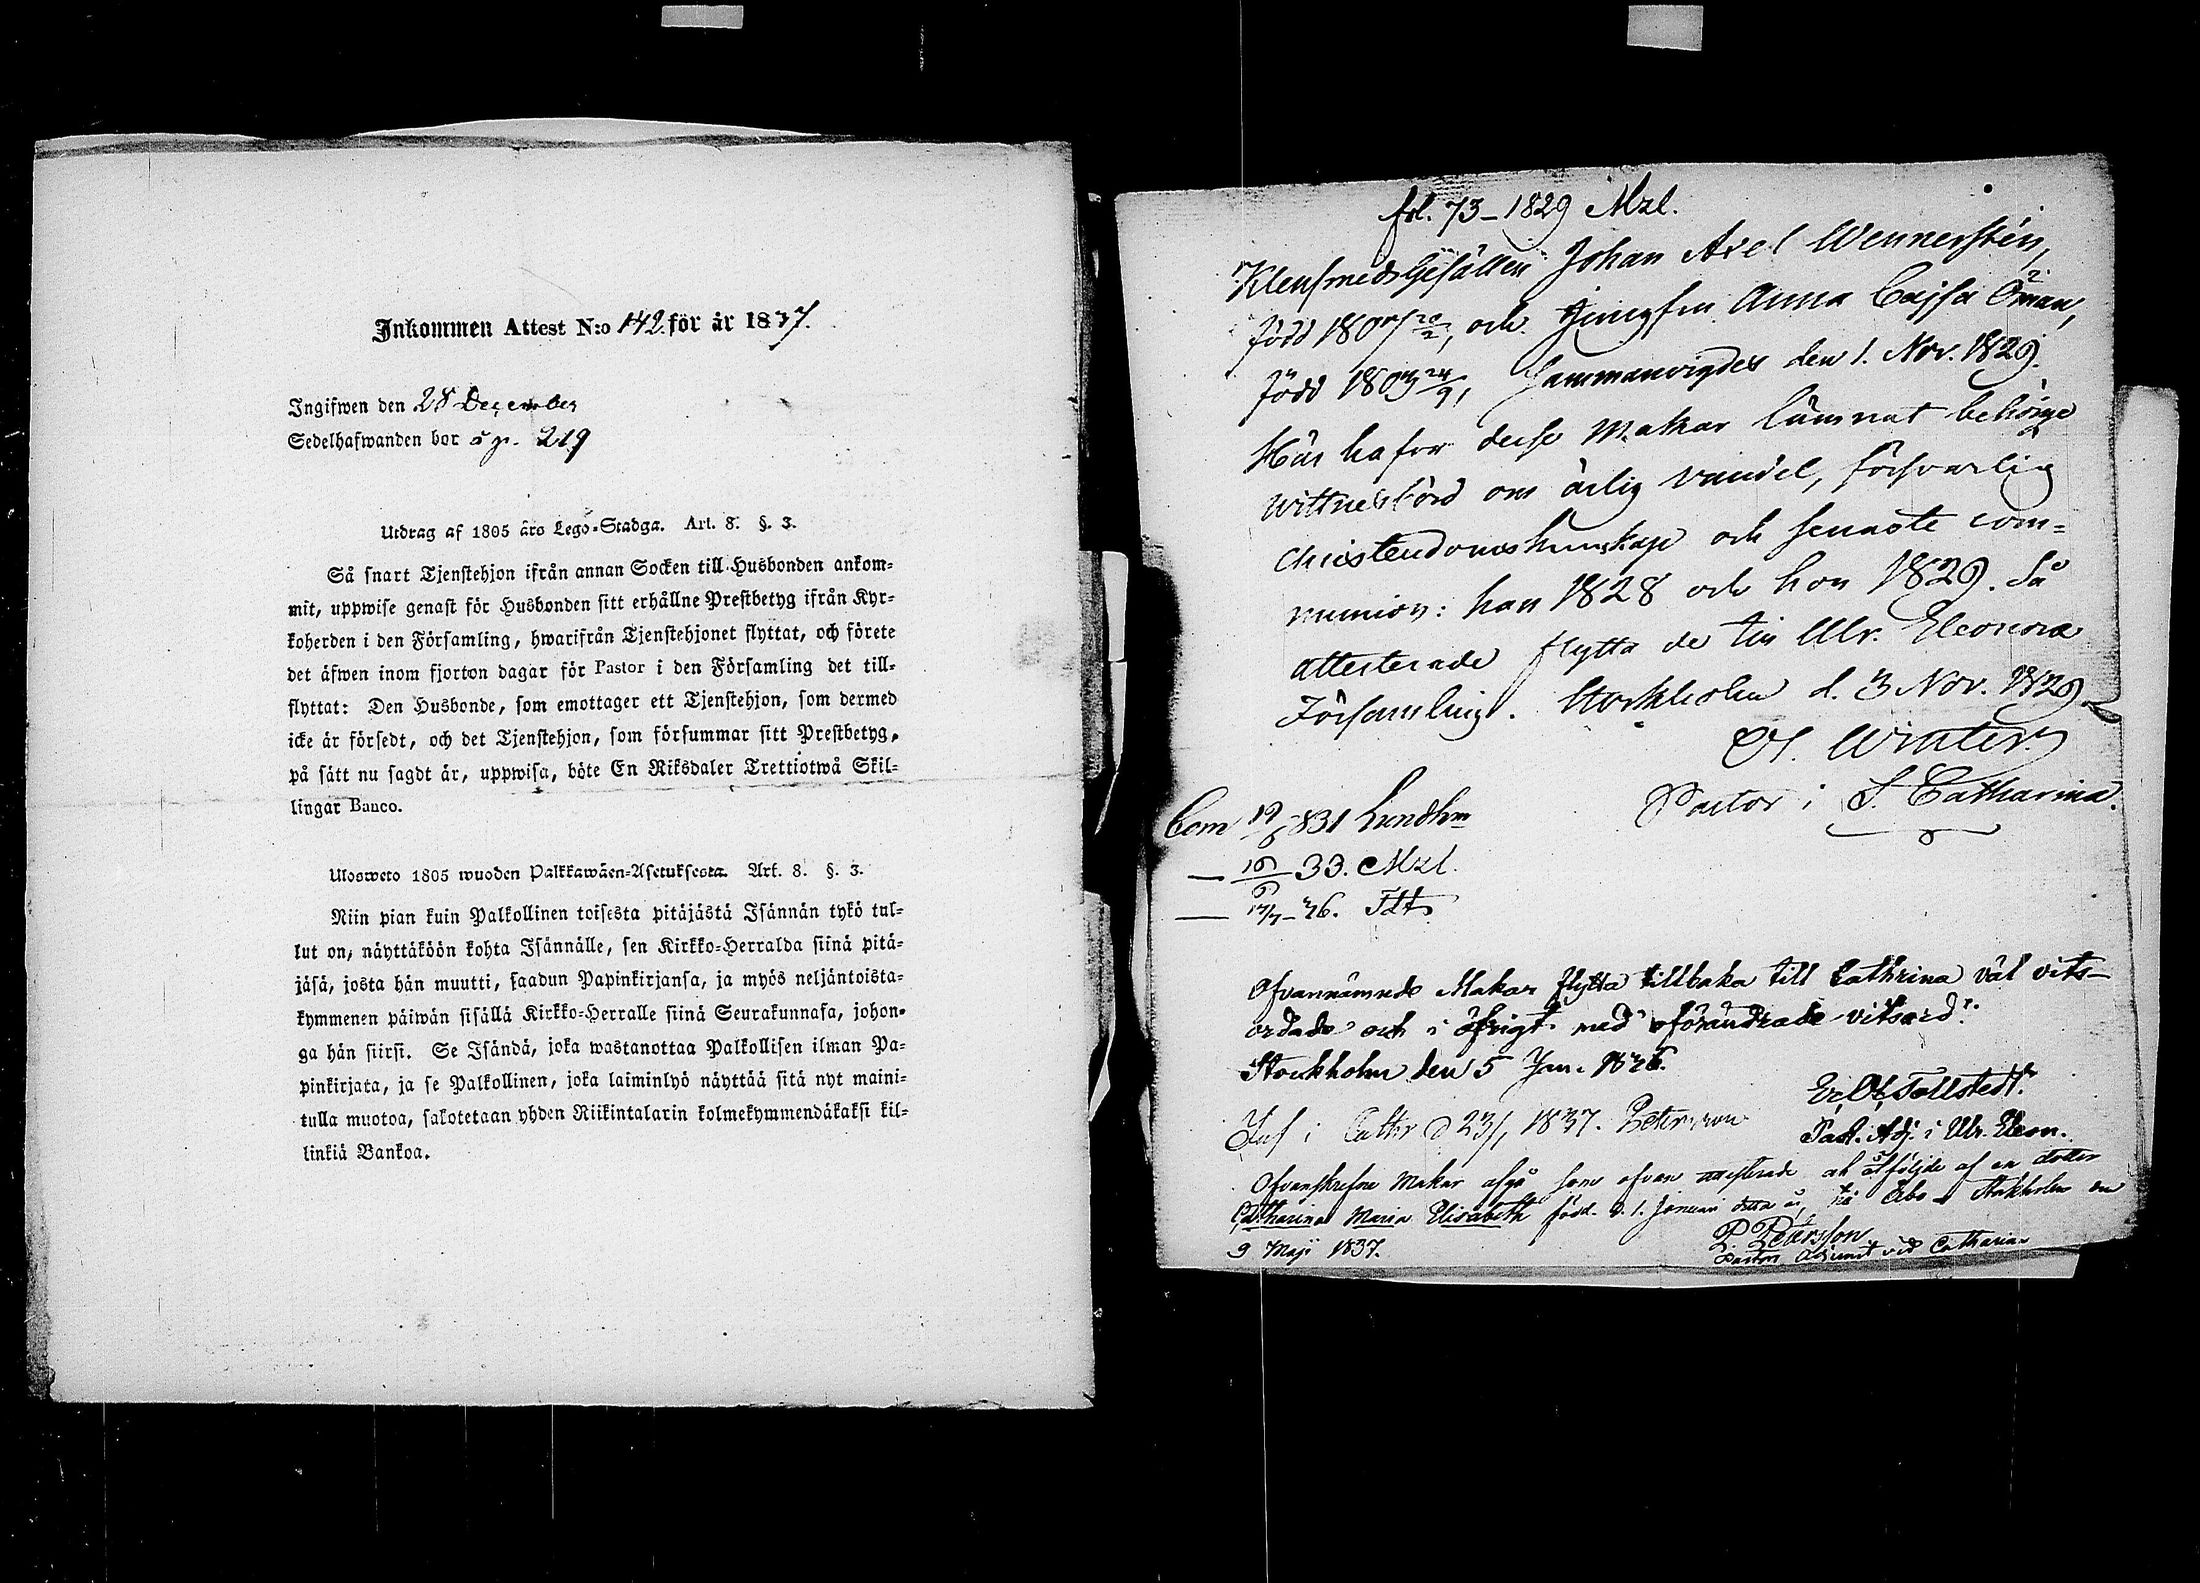 Inkommen Attest N:o 142. för år 1837.
Ingifwen den 28 December
Sedelhafwanden bor 219
Utdrag af 1805 års Lego-Stadga. Art. 8. §. 3.
Så snart Tjenstehjon ifrån annan Socken till Husbonden ankom-
mit, uppwise genast för Husbonden sitt erhållne Prestbetyg ifrån Kyr-
koherden i den Församling, hwarifrån Tjenstehjonet flyttat, och förete
det äfwen inom fjorton dagar för Pastor i den Församling det till-
flyttat: Den Husbonde, som emottager ett Tjenstehjon, som dermed
icke är försedt, och det Tjenstehjon, som försummar sitt Prestbetyg,
på sätt nu sagdt är, uppwisa, böte En Riksdaler Trettiotwå Skil-
lingar Banco.
Ulosweto 1805 wuoden Palkkawäen-Asetuksesta. Art. 8. §. 3.
Niin pian kuin Palkollinen toisesta pitäjästä Isännän tykö tul-
lut on, näyttäköön kohta Isännälle, sen Kirkko-Herralda siinä pitä-
jäsä, josta hän muutti, saadun Papinkirjansa, ja myös neljäntoista-
kymmenen päiwän sisällä Kirkko-Herralle siinä Seurakunnasa, johon-
ga hän siirsi. Se Isändä, joka wastanottaa Palkollisen ilman Pa-
pinkirjata, ja se Palkollinen, joka laiminlyö näyttää sitä nyt maini-
tulla muotoa, sakotetaan yhden Riikintalarin kolmekymmendäkaksi kil-
linkiä Bankoa.
fol. 73 - 1829 Mzl.
Klensmedsgesällen Johan Axel Wennerstén,
född 1807 20/2, och Jungfru Anna Cajsa Öman,
född 1803 24/9, sammanvigdes den 1. Nov. 1829.
Här hafva desse Makar lämnat behörige
wittnesbörd om ärlig vandel, försvarlig
christendomskunskap och senaste com-
munion: han 1828 och hon 1829. Så
attesterade flytta de till Ulr. Eleonora
Församling. Stockholm d. 3 Nov. 1829.
Winter
Pastor i S. Catharina.
Com 19/6 831 Lundhm
— 16/6 33. Mzl.
— 17/7 - 36.
Ofvannämnde Makar flytta tillbaka till Cathrina väl vits-
ordade och i öfrigt med oförändrade vitsord.
Stockholm den 5 Jan. 1836.
Tollstedt.
Past. Adj. i Ulr. Eleon.
Inf i Cathr d 23/1 1837. Petersson
Ofvanskrefne Makar afgå som ofvan attesterade åtföljde af en dotter
Catharina Maria Elisabeth född d. 1. Januari detta år, till Åbo. Stockholm den
9 Maji 1837.
P. Petersson
Pastors Adjunct vid Catharina